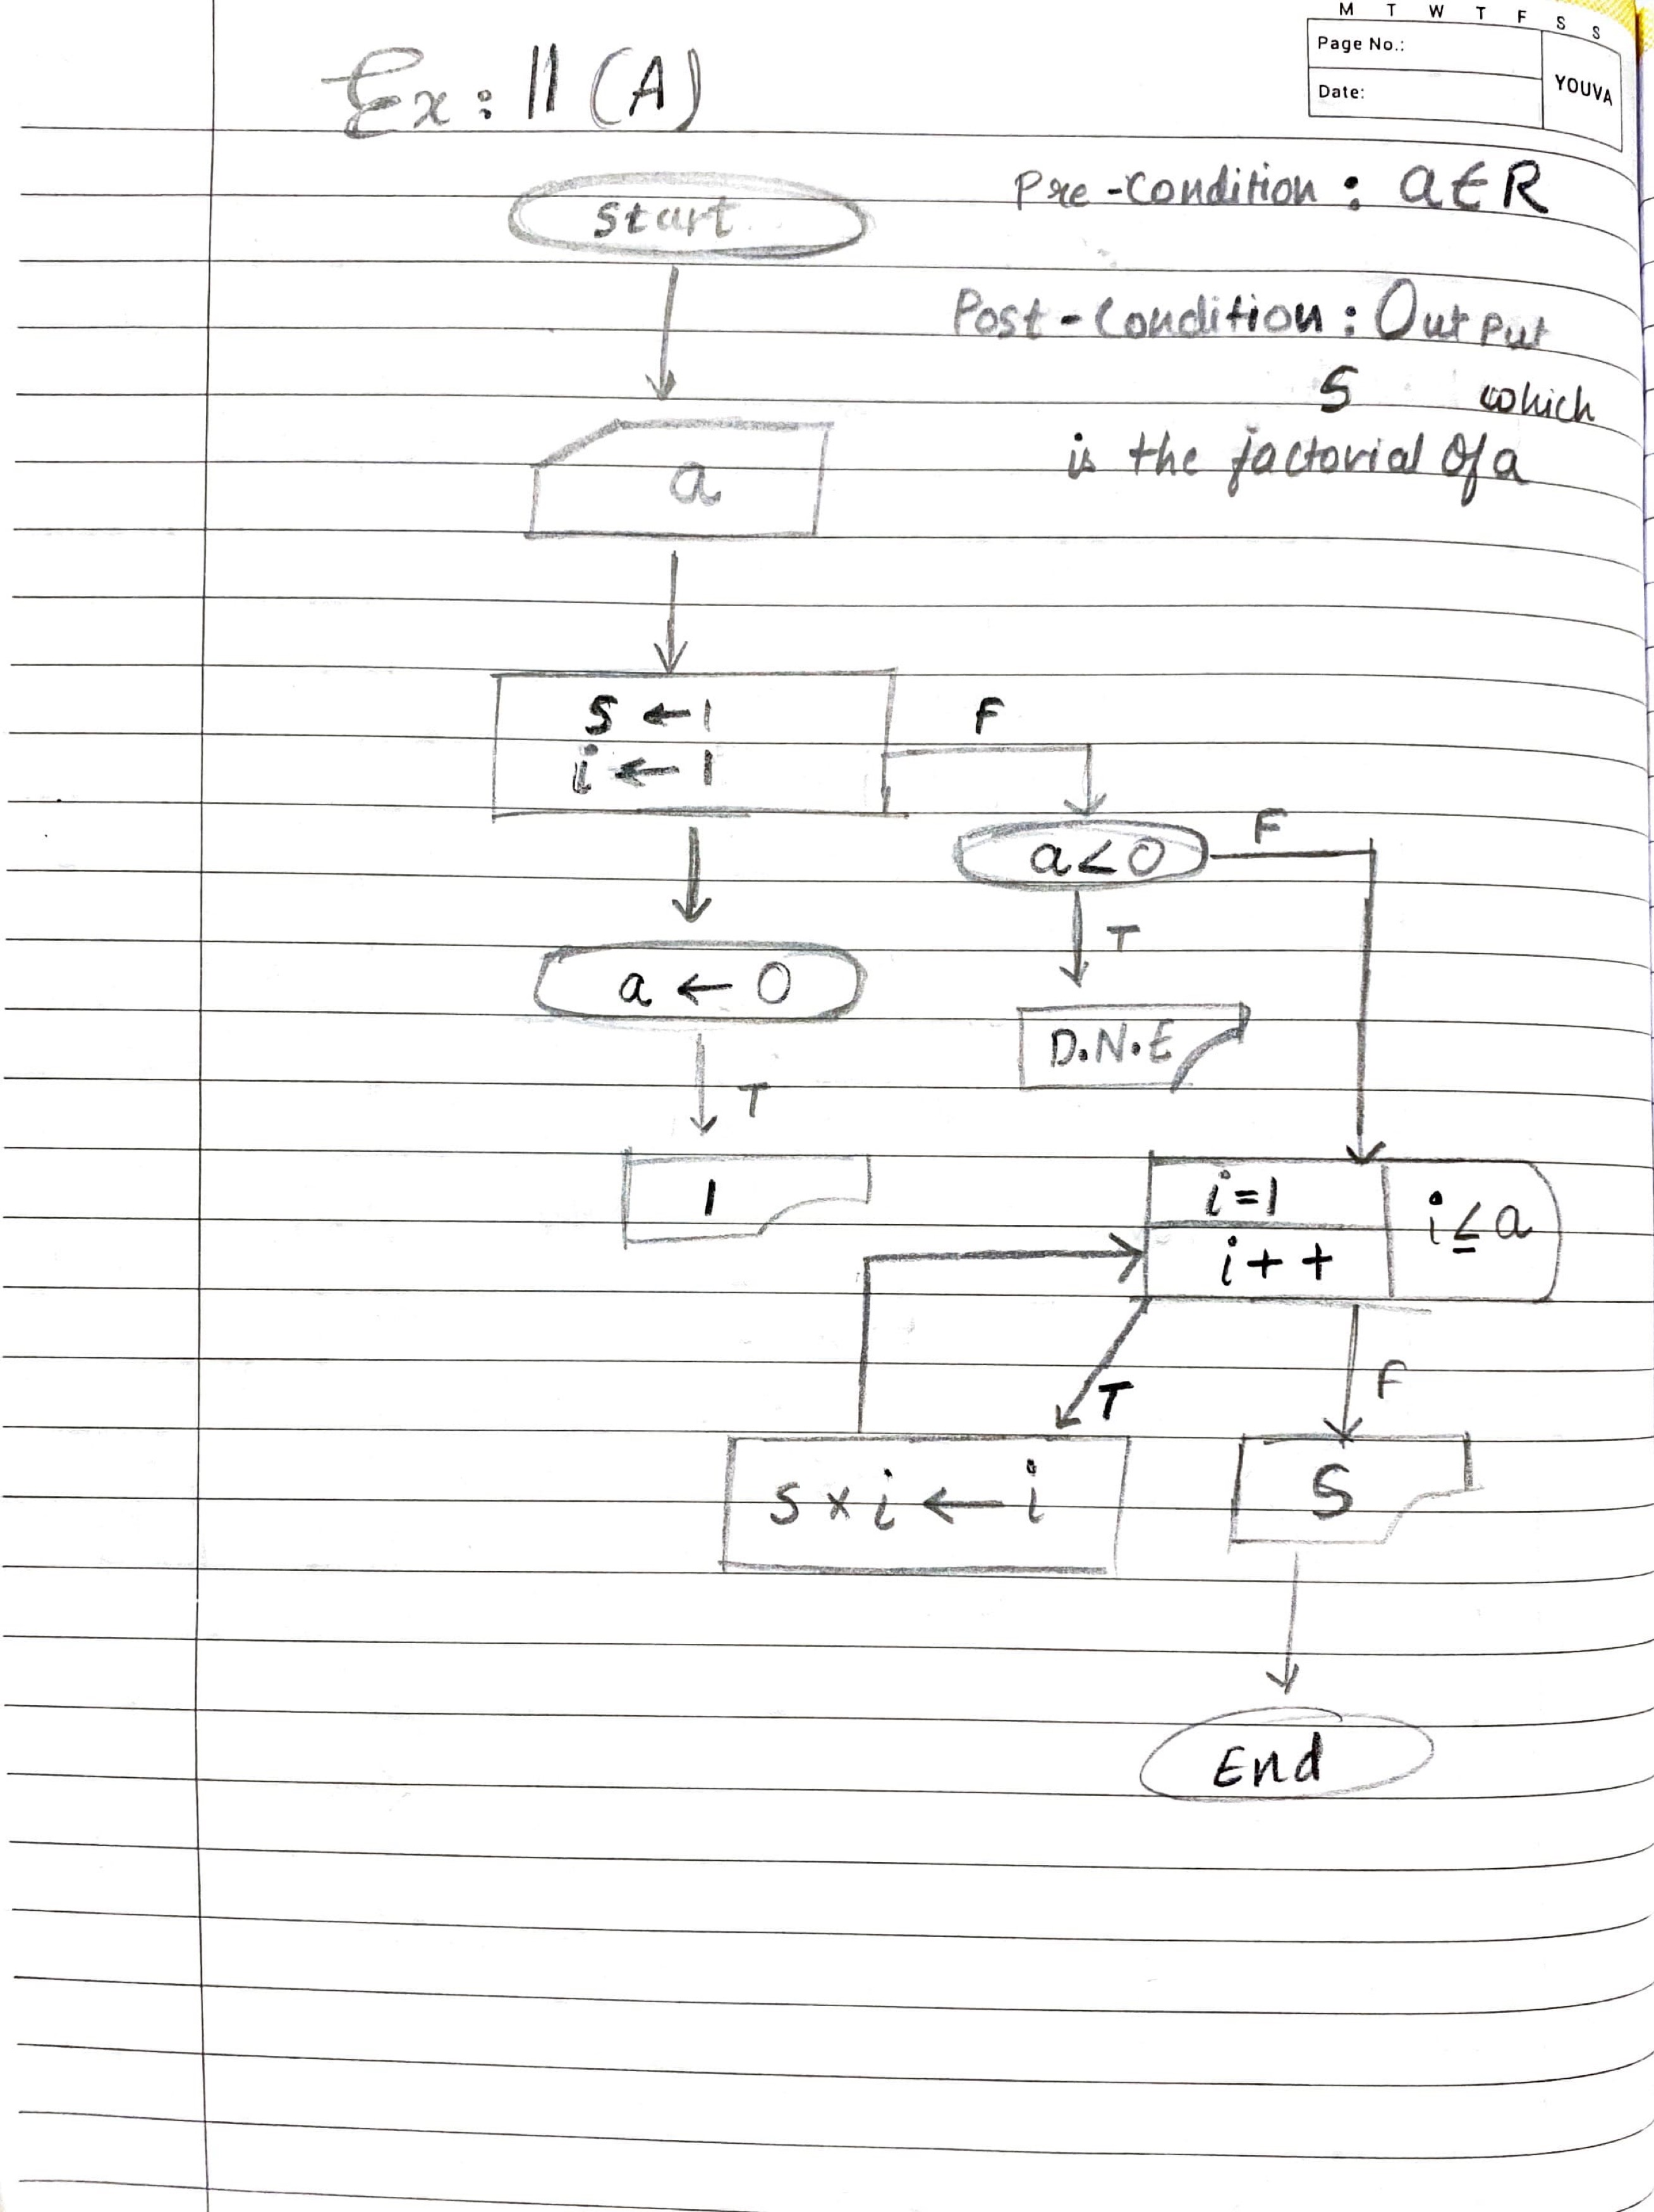 M T W T F S S
Page No.:
Date:
YOUVA
Ex: 11 (A)
Pre-Condition: a∈R
Start
Post-Condition: Output
S which
is the factorial Of a
a
S ←1
i ← 1
F
a<0
F
T
a ← 0
D.N.E
T
1
i=1
i≤a
i++
T
F
S×i ← i
S
End